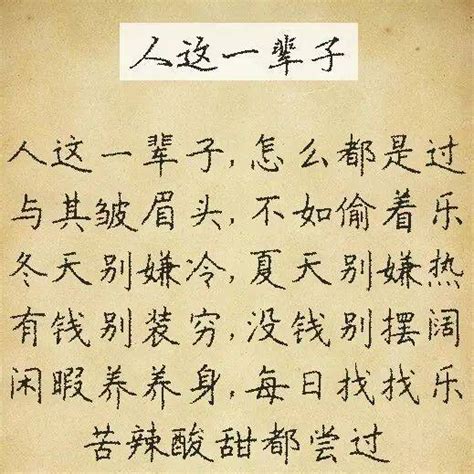 人这一辈子
人这一辈子,怎么都是过
与其皱眉头,不如偷着乐
冬天别嫌冷,夏天别嫌热
有钱别装穷,没钱别摆阔
闲暇养养身,每日找找乐
苦辣酸甜都尝过